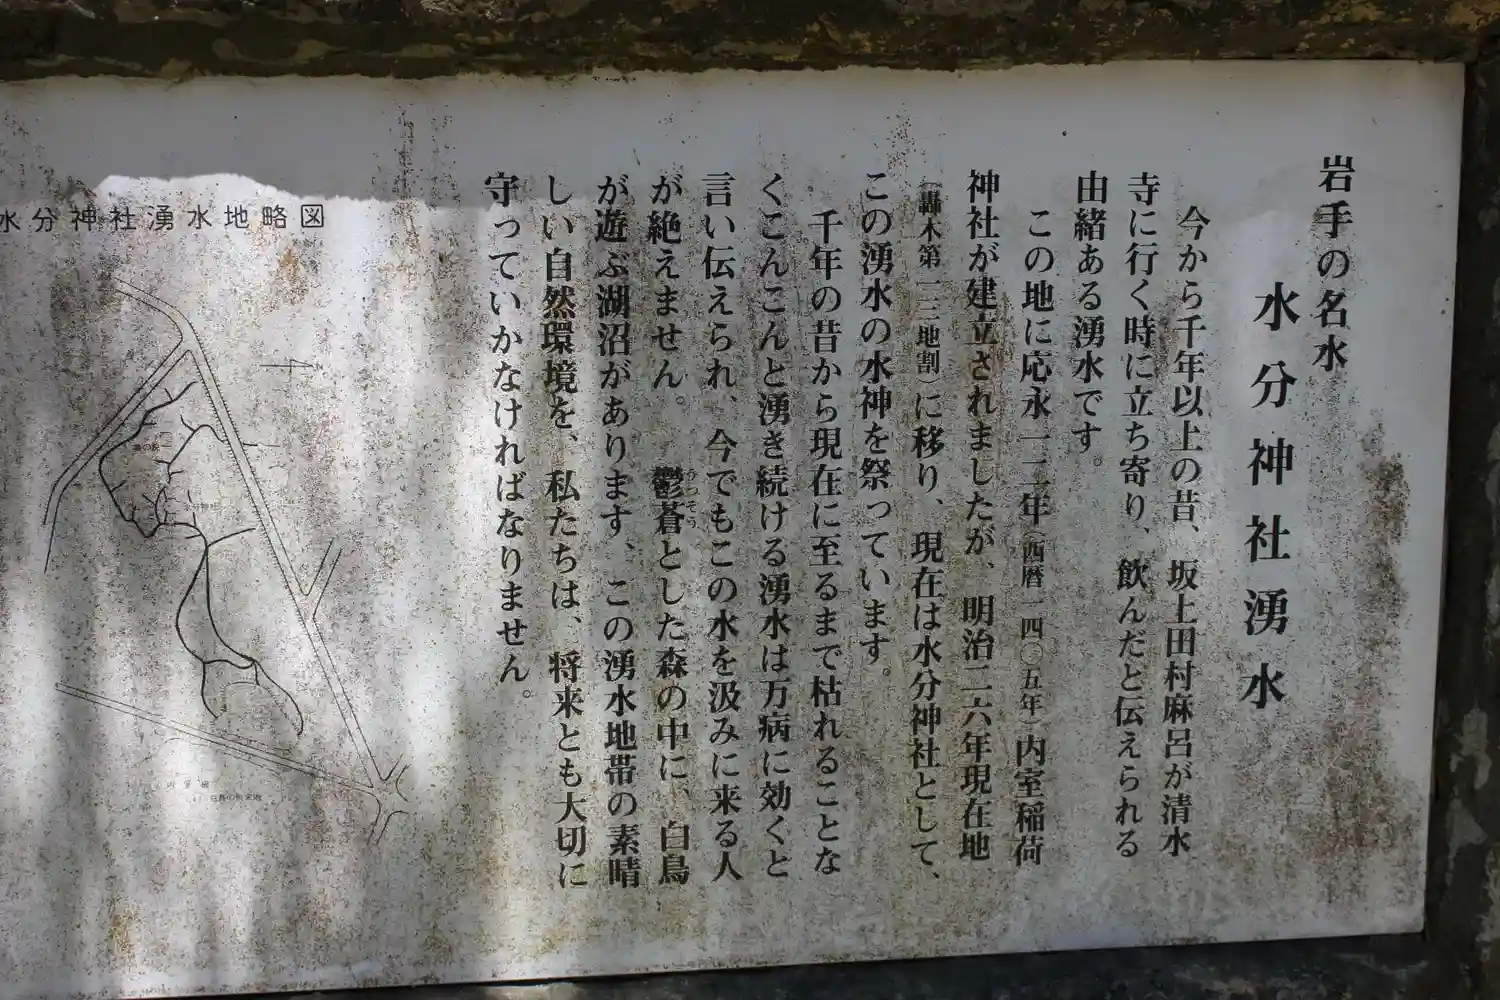 岩手の名水
水分神社湧水
今から千年以上の昔、坂上田村麻呂が清水
寺に行く時に立ち寄り、飲んだと伝えられる
由緒ある湧水です。
この地に応永一二年（西暦一四〇五年）内室稲荷
神社が建立されましたが、明治二六年現在地
（轟木第一三地割）に移り、現在は水分神社として、
この湧水の水神を祭っています。
千年の昔から現在に至るまで枯れることな
くこんこんと湧き続ける湧水は万病に効くと
言い伝えられ、今でもこの水を汲みに来る人
が絶えません。鬱蒼とした森の中に、白鳥
うっそう
が遊ぶ湖沼があります、この湧水地帯の素晴
しい自然環境を、私たちは、将来とも大切に
守っていかなければなりません。
水分神社湧水地略図